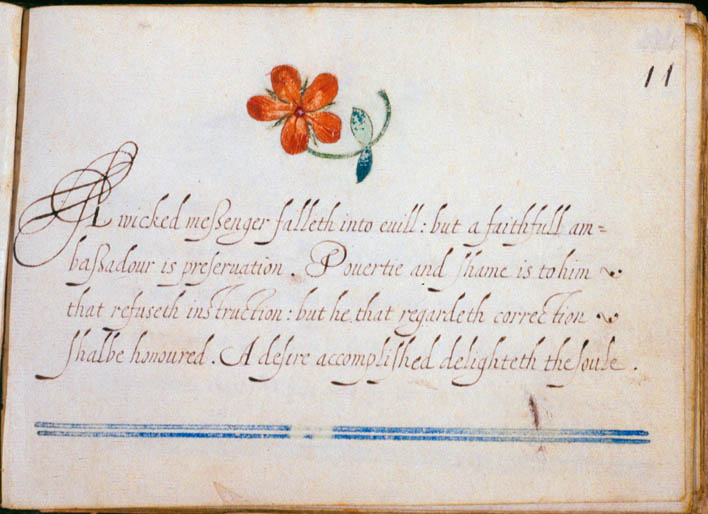 11
A wicked meßenger falleth into euill: but a faithfull am=
baßadour is preſeruation. Pouertie and ſhame is to him
that refuseth inſtruction: but he that regardeth correction
ſhalbe honoured. A deſire accompliſhed delighteth the ſoule.